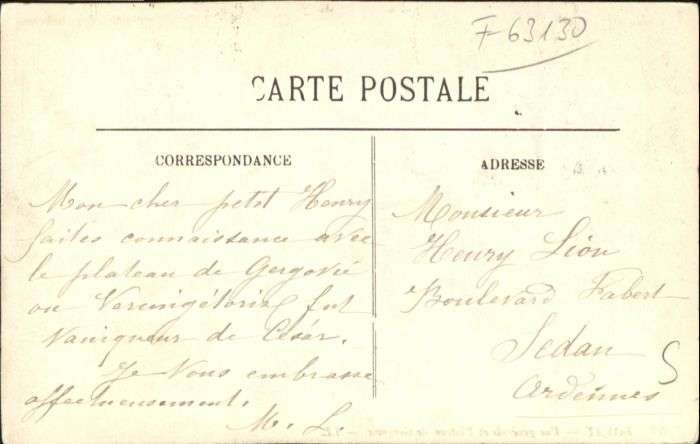 F 63130
CARTE POSTALE
CORRESPONDANCE
Mon cher petit Henry
faites connaissance avec
le plateau de Gergovie
ou Vercingétorix fut
Vainqueur de César.
Je Vous embrasse
affectueusement.
M. L.
ADRESSE
Monsieur
Henry Lion
Boulevard Fabert
Sedan
Ardennes